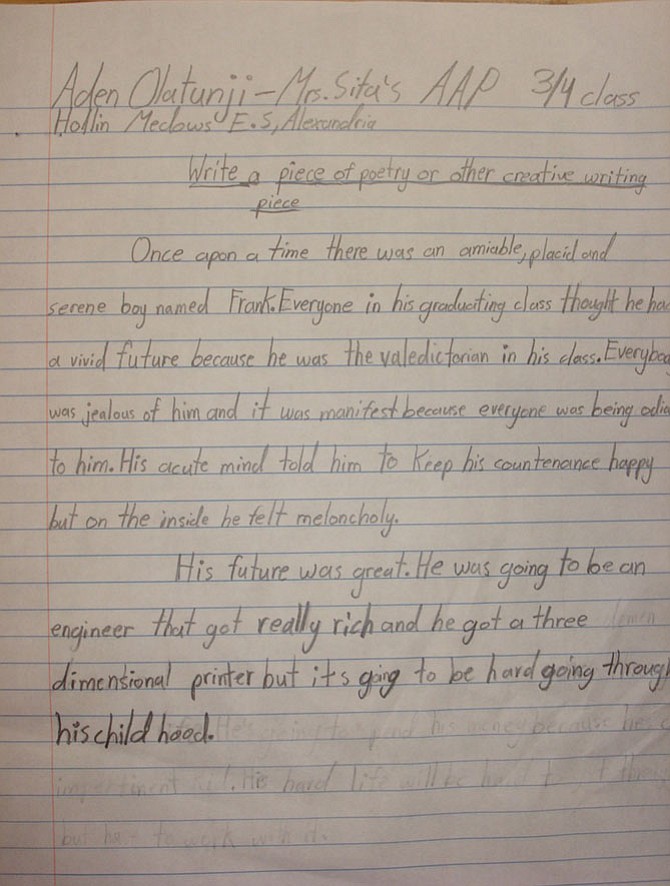 Aden Olatunji-Mrs. Sita's AAP 3/4 class
Hollin Medows E.S, Alexandria
Write a piece of poetry or other creative writing
piece
Once apon a time there was an amiable, placid and
serene boy named Frank. Everyone in his graduating class thought he ha
a vivid future because he was the valedictorian in his class. Everybod
was jealous of him and it was manifest because everyone was being odio
to him. His acute mind told him to keep his countenance happy
but on the inside he felt meloncholy.
His future was great. He was going to be an
engineer that got really rich and he got a three
dimensional printer but it's going to be hard going through
his child hood.
He's going to spend his money because he's
impertinent kid. His hard life will be hard
but he to work with it.